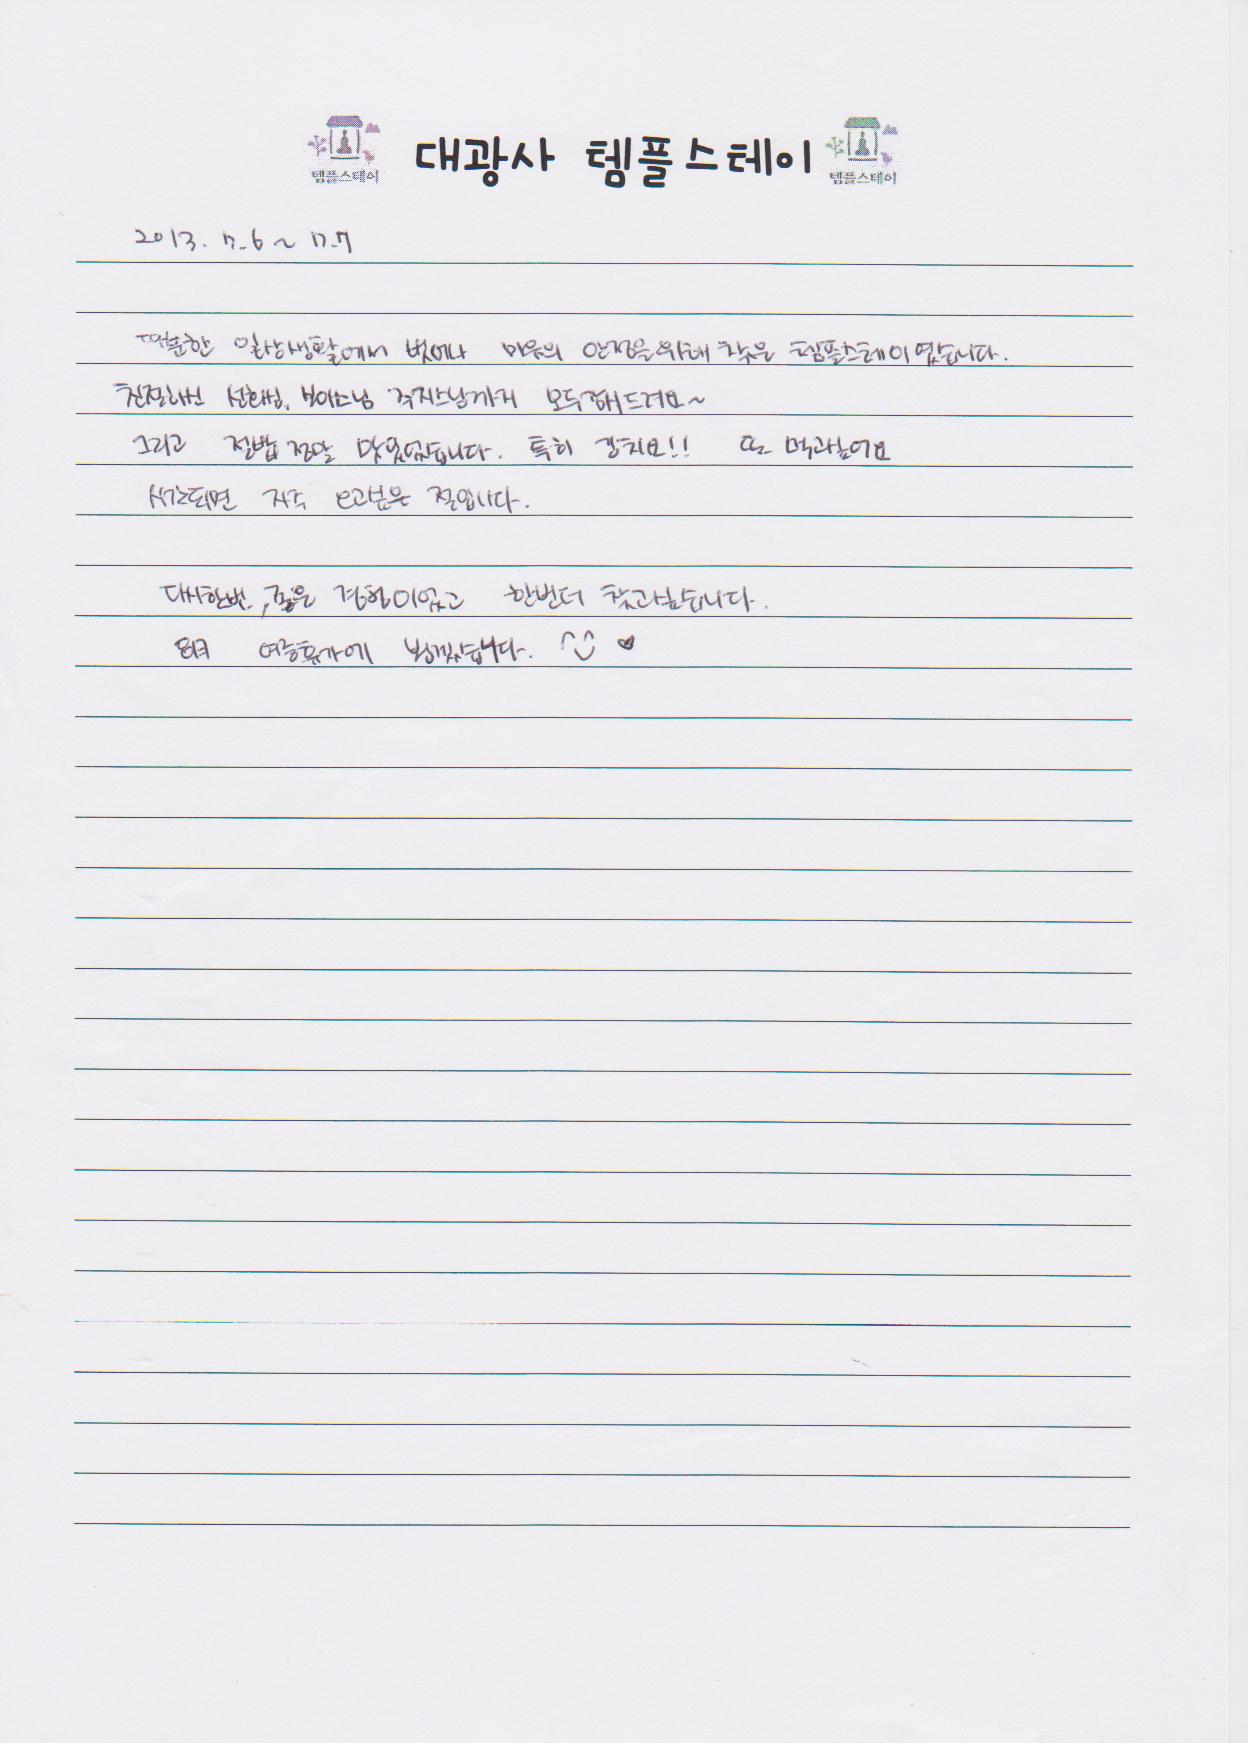 템플스테이 대광사 템플스테이 템플스테이
2013. 7. 6 ~ 7.7
따분한 일상생활에서 벗어나 마음의 안정을 위해 찾은 템플스테이였습니다.
친절하신 주지스님까지 모두 감사드려요~
그리고 절밥 정말 맛있었습니다. 특히 김치요!! 또 먹고싶어요
시간되면 자주 오고싶은 절입니다.
다시한번, 좋은 경험이었고 한번더 찾고싶습니다.
여름휴가에 뵙겠습니다.